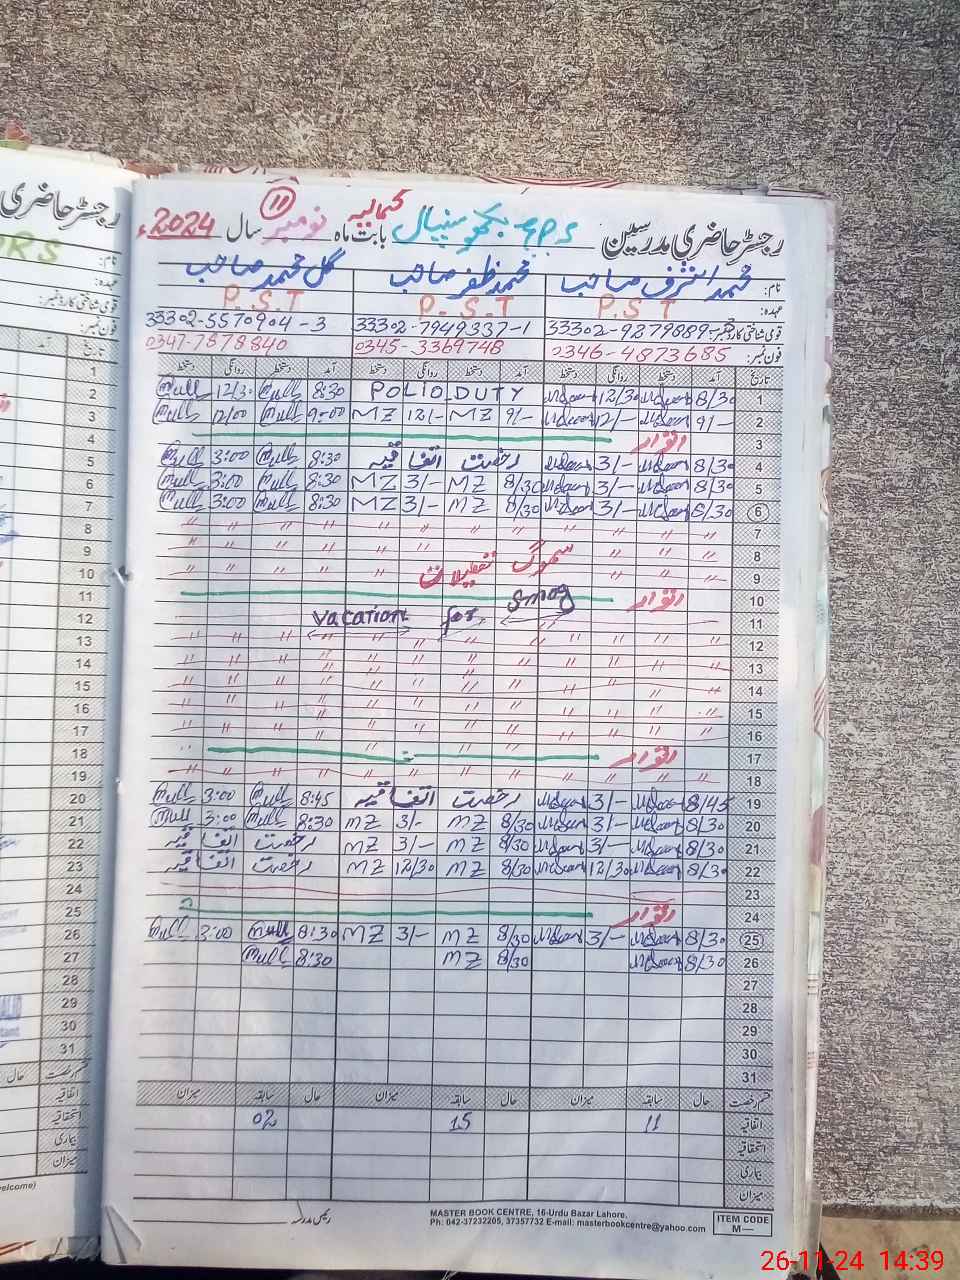 رجسٹر حاضری مدرسین GPS بکھو سنپال کمالیہ بابت ماہ نومبر 11 سال 2024ء
نام: محمد اشرف صاحب محمد ظفر صاحب گل محمد صاحب
عہدہ: P.S.T P.S.T P.S.T
قومی شناختی کارڈ نمبر: 33302-9279889- 33302-7949337-1 33302-5570904-3
فون نمبر: 0346-4873685 0345-3369748 0347-7878840
تاریخ آمد دستخط روانگی دستخط آمد دستخط روانگی دستخط آمد دستخط روانگی دستخط
1 8/30 12/30 POLIO DUTY 8:30 12/30
2 9/- 12/- 9/- MZ 12/- MZ 9:00 12/00
3 اتوار
4 8/30 3/- رخصت اتفاقیہ 8:30 3:00
5 8/30 3/- 8/30 MZ 3/- MZ 8:30 3:00
6 8/30 3/- 8/30 MZ 3/- MZ 8:30 3:00
7 " " " " " " " " " " " "
8 سموگ تعطیلات
9 " " " " " " " "
10 اتوار
11 vacation for smog
12 " " " " " " " " " " " "
13 " " " " " " " " " " " "
14 " " " " " " " " " " " "
15 " " " " " " " " " " " "
16 " " " " " " " " " " " "
17 اتوار
18 " " " " " " " " " " " "
19 8/45 3/- رخصت اتفاقیہ 8:45 3:00
20 8/30 3/- 8/30 MZ 3/- MZ 8:30 3:00
21 8/30 3/- 8/30 MZ 3/- MZ رخصت اتفاقیہ
22 8/30 12/30 8/30 MZ 12/30 MZ رخصت اتفاقیہ
23
24 اتوار
25 8/30 3/- 8/30 MZ 3/- MZ 8:30 3:00
26 8/30 8/30 MZ 8:30
27
28
29
30
31
قسم رخصت حال سابقہ میزان حال سابقہ میزان حال سابقہ میزان
اتفاقیہ 11 15 02
استحقاقیہ
بیماری
میزان
رئیس مدرسہ
MASTER BOOK CENTRE, 16-Urdu Bazar Lahore.
Ph: 042-37232205, 37357732 E-mail: masterbookcentre@yahoo.com
ITEM CODE
M—
رجسٹر حاضری
RS
نام:
عہدہ:
قومی شناختی کارڈ نمبر:
فون نمبر:
تاریخ آمد
1
2
3
4
5
6
7
8
9
10
11
12
13
14
15
16
17
18
19
20
21
22
23
24
25
26
27
28
29
30
31
قسم رخصت حال
اتفاقیہ
استحقاقیہ
بیماری
میزان
elcome)
26-11-24 14:39